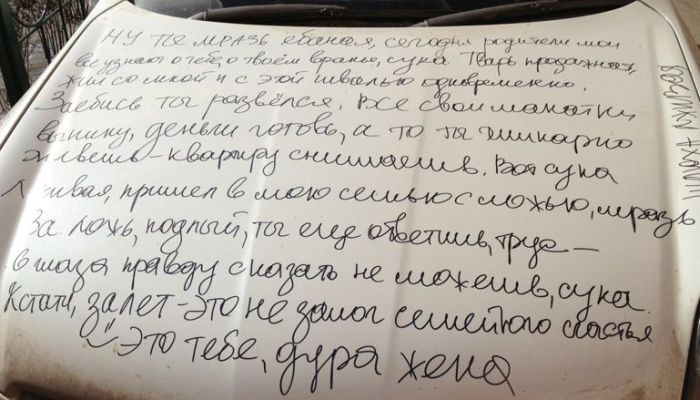 Ну ты мразь ебаная, сегодня родители мои
все узнают о тебе, о твоём вранье, сука. Тварь продажная,
жил со мной и с этой швалью одновременно.
Заебись ты развёлся. Все свои манатки
выкину, деньги готовь, а то ты шикарно
живешь – квартиру снимаешь. Вот сука
лживая, пришел в мою семью с ложью, мразь
За ложь, подлый, ты еще ответишь, трус –
в глаза правду сказать не можешь, сука.
Кстати, залет – это не залог семейного счастья
Это тебе, дура жена